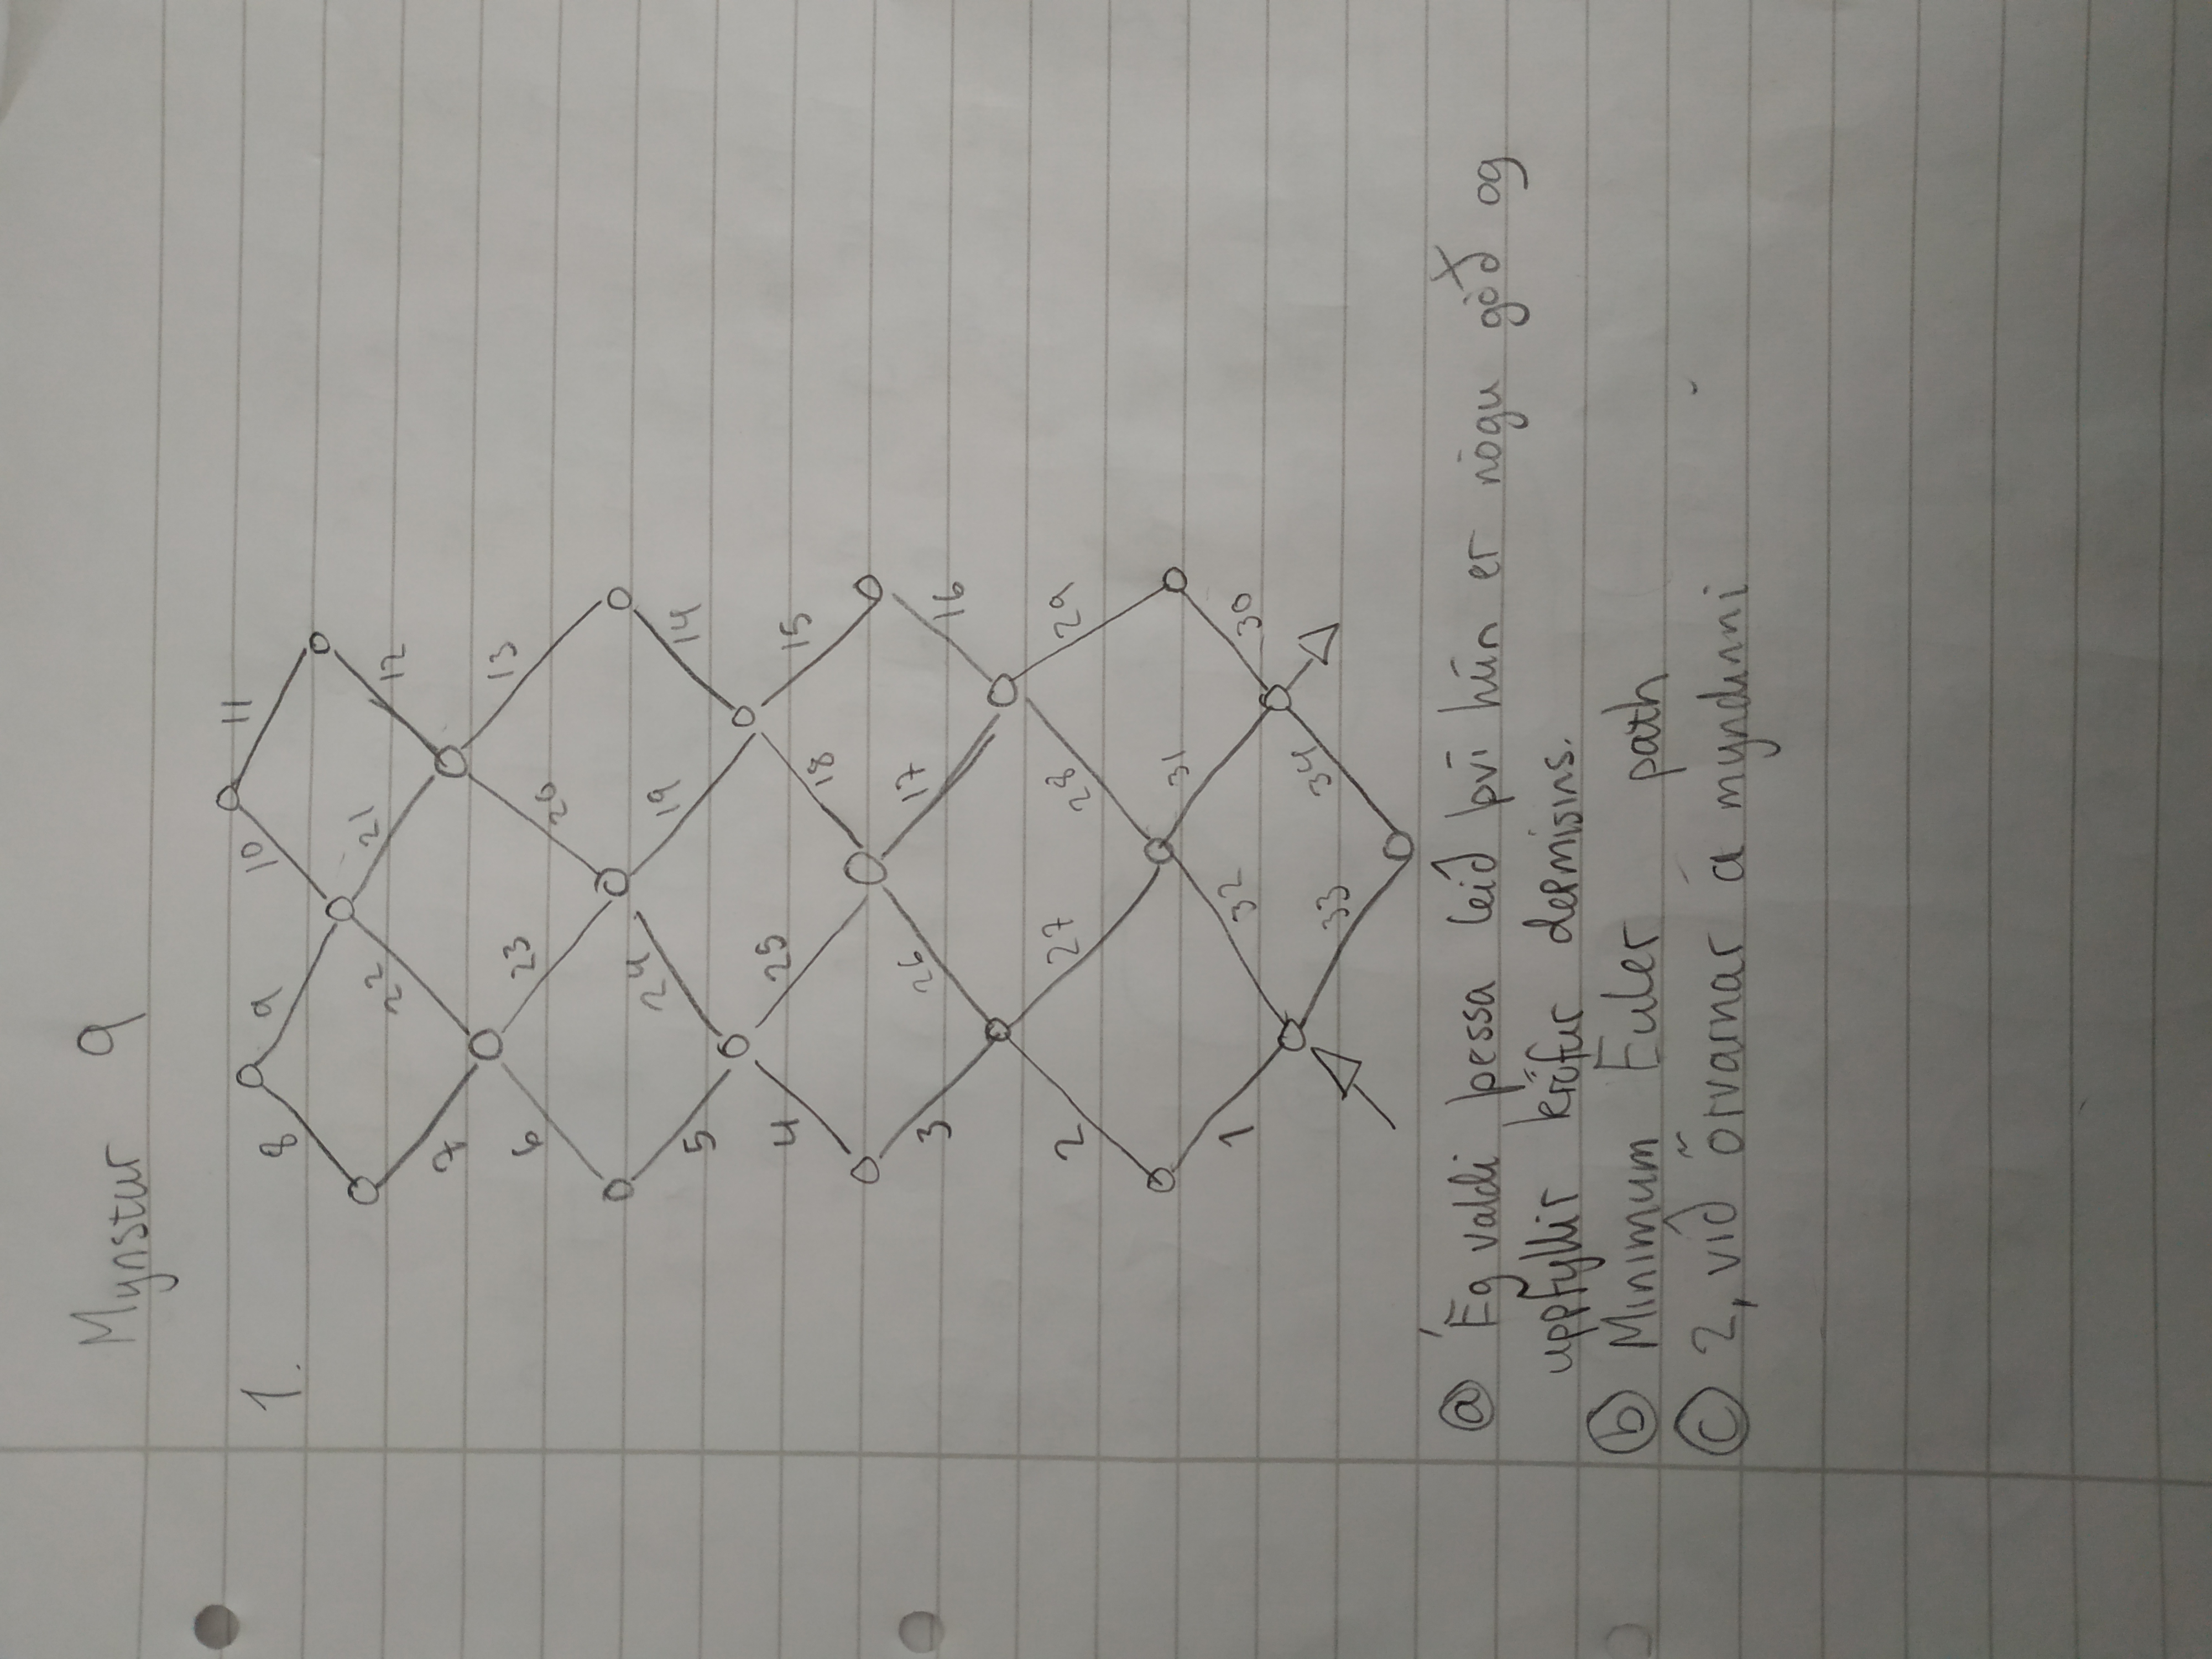 Mynstur 9
1.
8 9 10 11
7 22 21 12
6 23 20 13
5 24 19 14
4 25 18 15
3 26 17 16
2 27 28 29
1 32 31 30
33 34
ⓐ Ég valdi þessa leið því hún er nógu góð og
uppfyllir kröfur dæmisins.
ⓑ Minimum Euler path
ⓒ 2, við örvarnar á myndinni